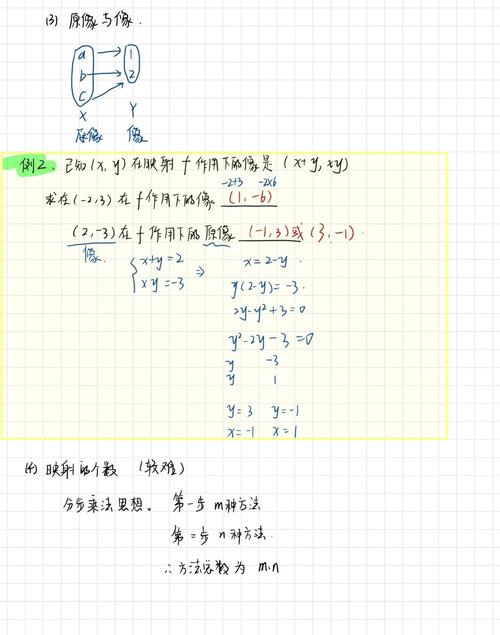 (3) 原像与像.
a → 1
b → 2
c
X Y
原像 像
例2. 已知(x, y)在映射 f 作用下的像是 (x+y, xy)
-2+3 -2×6
求在(-2,3) 在 f 作用下的像 (1, -6)
(2,-3)在 f 作用下的原像 (-1,3)或(3,-1).
像.
x+y=2 ⇒ x=2-y.
xy=-3 y(2-y)=-3.
2y-y²+3=0
y²-2y-3=0
y -3
y 1
y=3 y=-1
x=-1 x=1
(4) 映射的个数 (较难)
分步乘法思想。 第一步 m种方法
第二步 n种方法.
∴方法总数为 m.n